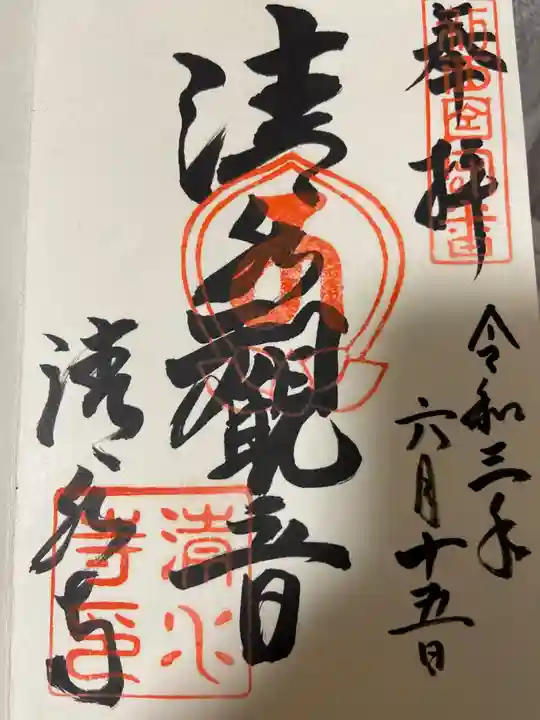 奉拝
令和三年
六月十五日
清水観音
清水寺
清水
寺印